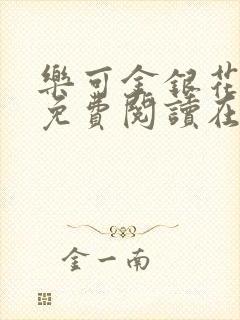 樂可金銀花
免費閱讀在
金一南